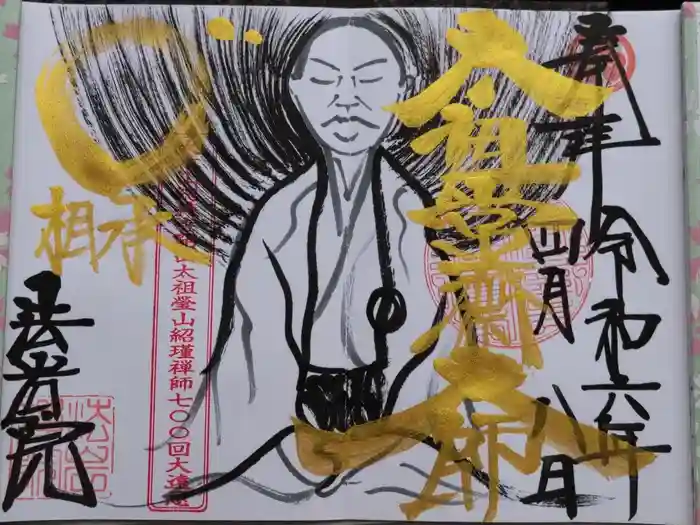 奉拝
令和六年
四月
八日
太祖瑩山大師
相承
太祖瑩山紹瑾禅師七〇〇回大遠忌
法岩院